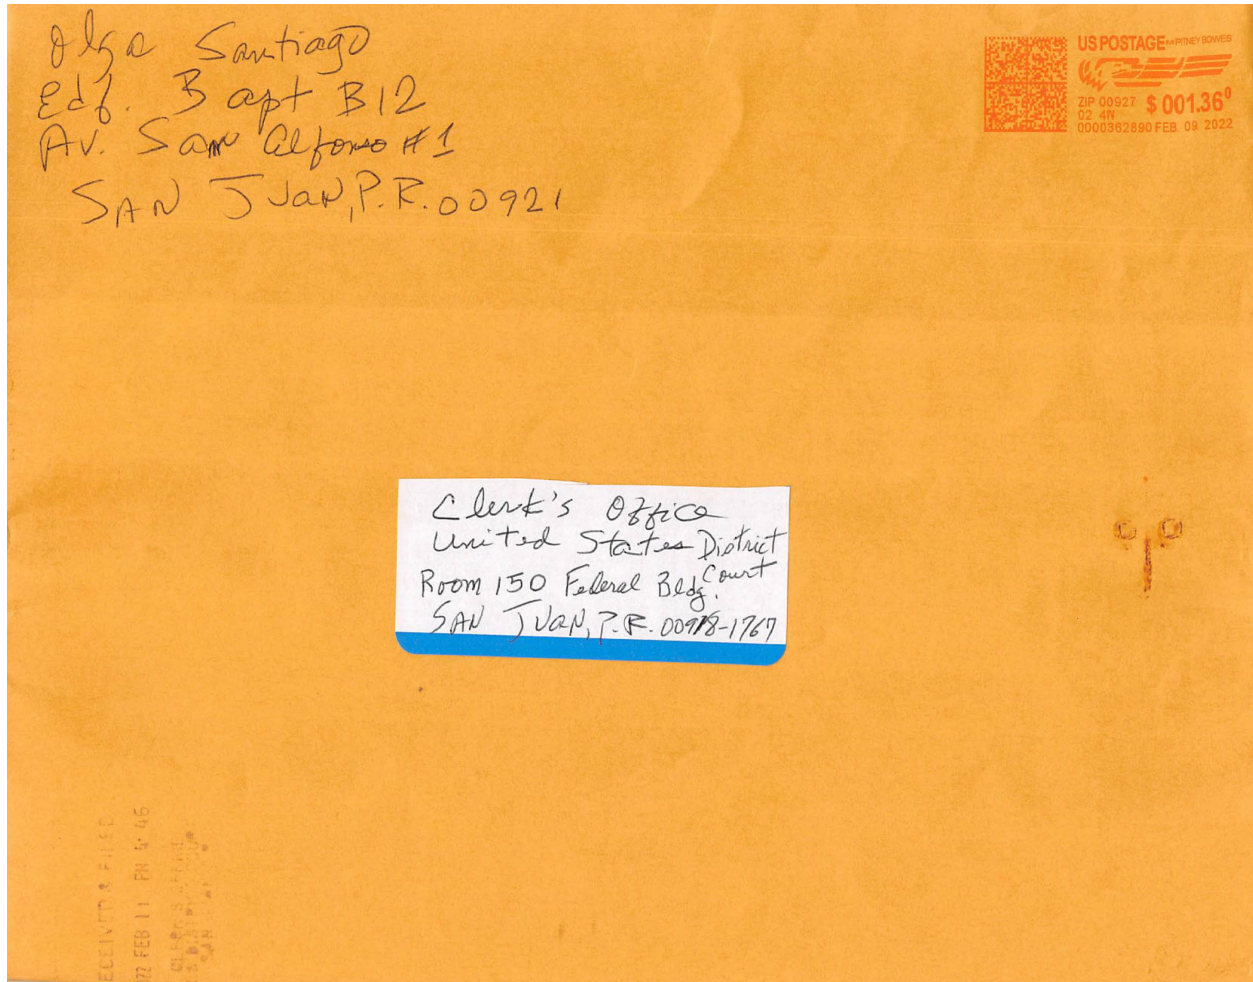 Olga Santiago
Edf. B apt B12
Av. San Alfonso #1
SAN JUAN, P.R. 00921
US POSTAGE PITNEY BOWES
ZIP 00927 $ 001.36⁰
02 4W
0000362890 FEB 09 2022
Clerk's Office
United States District
Court
Room 150 Federal Bldg.
SAN JUAN, P.R. 00918-1767
ECEIVED & FILED
22 FEB 11 PM 4:46
CLERK'S OFFICE